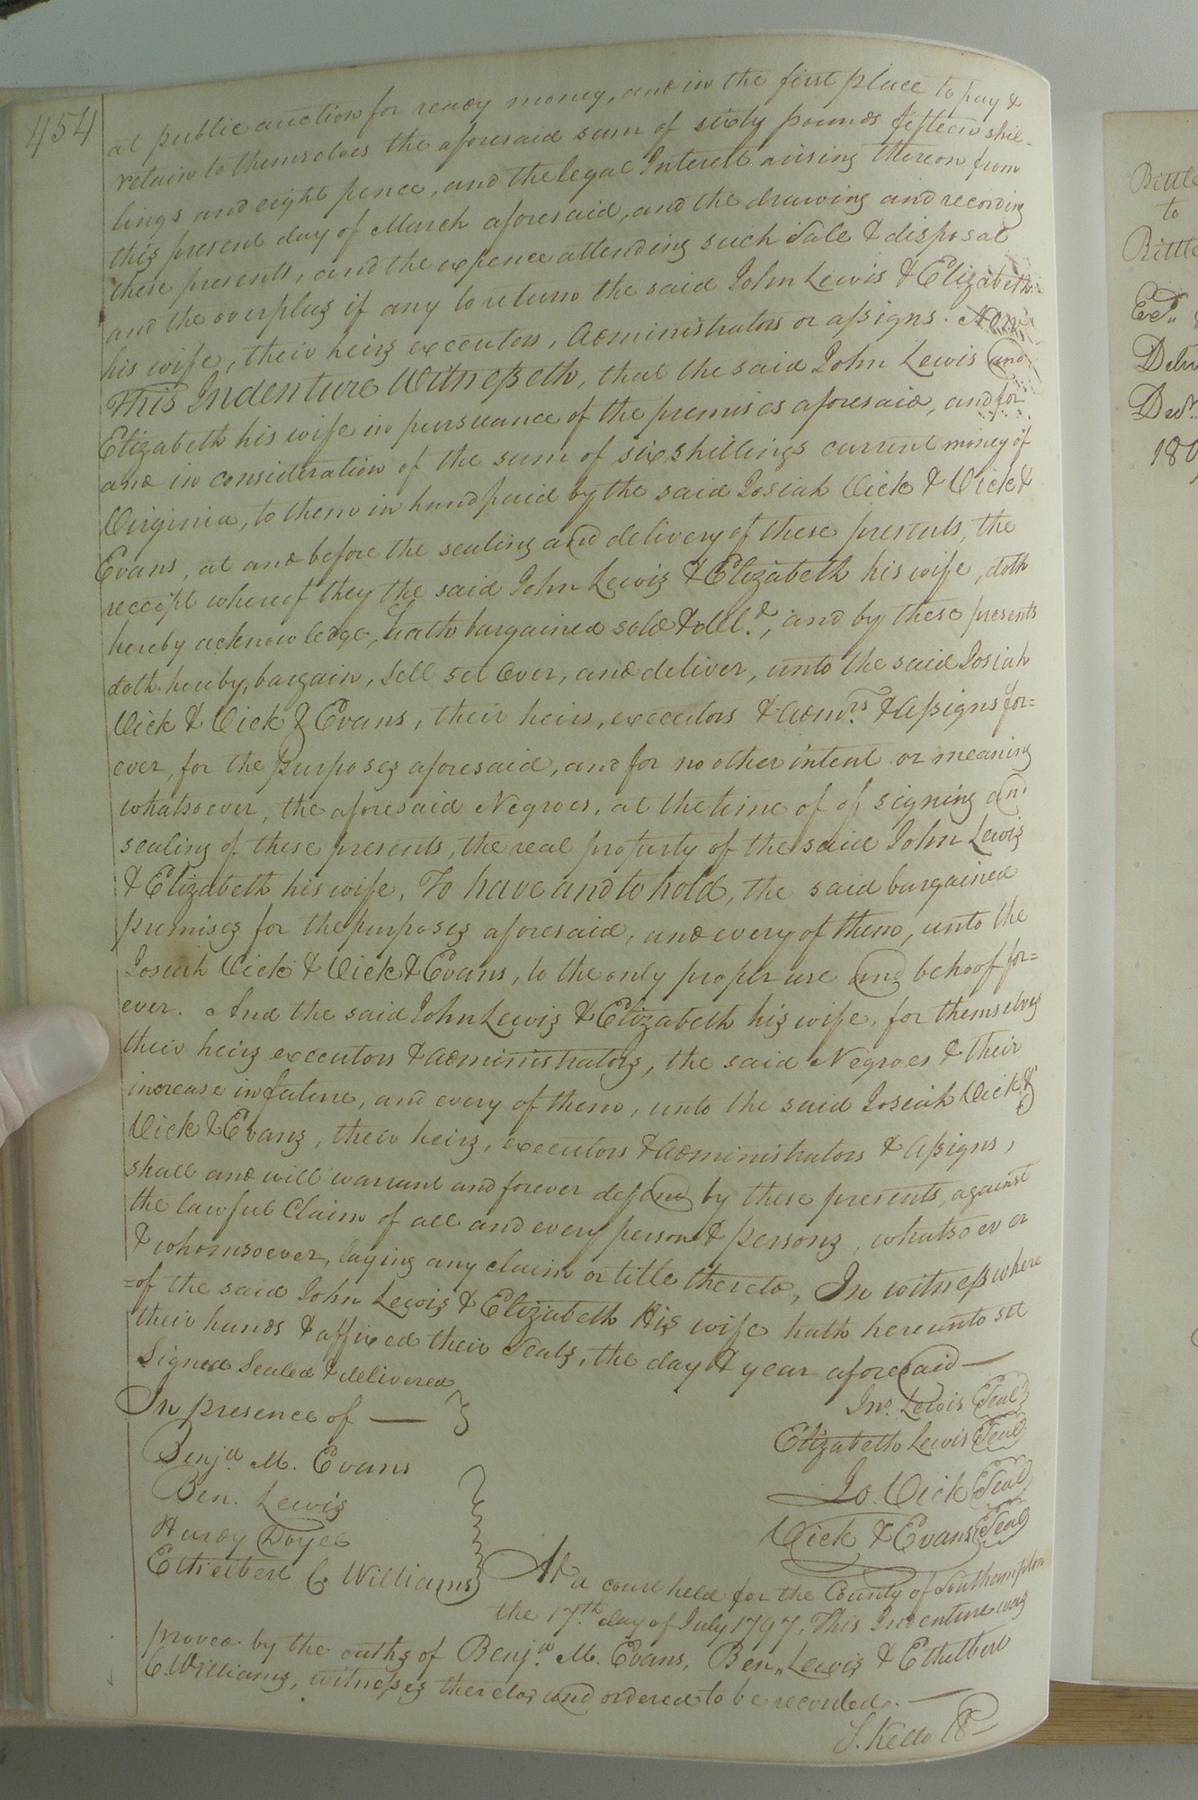 454
at public auction for ready money, and in the first place to pay &
retain to themselves the aforesaid sum of sixty pounds fifteen shil-
lings and eight pence, and the legal Interest arising thereon from
this present day of March aforesaid, and the drawing and recording
these presents, and the expence attending such Sale & disposal
and the overplus if any to return the said John Lewis & Elizabeth
his wife, their heirs executors, administrators or assigns. Now
This Indenture Witnesseth, that the said John Lewis and
Elizabeth his wife in pursuance of the premises aforesaid, and for
and in consideration of the sum of six shillings current money of
Virginia, to them in hand paid by the said Josiah Vick & Vick &
Evans, at and before the sealing and delivery of these presents, the
receipt whereof they the said John Lewis & Elizabeth his wife, doth
hereby acknowledge, hath bargained sold & deld., and by these presents
doth hereby, bargain, Sell set over, and deliver, unto the said Josiah
Vick & Vick & Evans, their heirs, executors & admrs. & assigns for=
ever, for the purposes aforesaid, and for no other intent or meaning
whatsoever, the aforesaid Negroes, at the time of of signing and
sealing of these presents, the real property of the said John Lewis
& Elizabeth his wife, To have and to hold, the said bargained
premises for the purposes aforesaid, and every of them, unto the
Josiah Vick & Vick & Evans, to the only proper use and behoof for=
ever. And the said John Lewis & Elizabeth his wife, for themselves
their heirs executors & administrators, the said Negroes & their
increase in future, and every of them, unto the said Josiah Vick &
Vick & Evans, their heirs, executors & administrators & assigns,
shall and will warrant and forever defend by these presents, against
the lawful Claim of all and every person & persons, whatsoever
& whomsoever, laying any claim or title thereto, In witness where
=of the said John Lewis & Elizabeth His wife hath hereunto set
their hands & affixed their Seals, the day & year aforesaid —
Signed Sealed & delivered
In presence of —
Jno. Lewis Seal
Elizabeth Lewis Seal
Benja. M. Evans
Jo. Vick Seal
Ben. Lewis
Vick & Evans Seal
Hardy Doyel
Ethelbert C. Williams
At a court held for the County of Southampton
the 17th. day of July 1797. This Indenture was
proved by the oaths of Benja. M. Evans, Ben,, Lewis & Ethelbert
C. Williams, witnesses thereto, and ordered to be recorded. —
S. Kello
to
Ex.,,